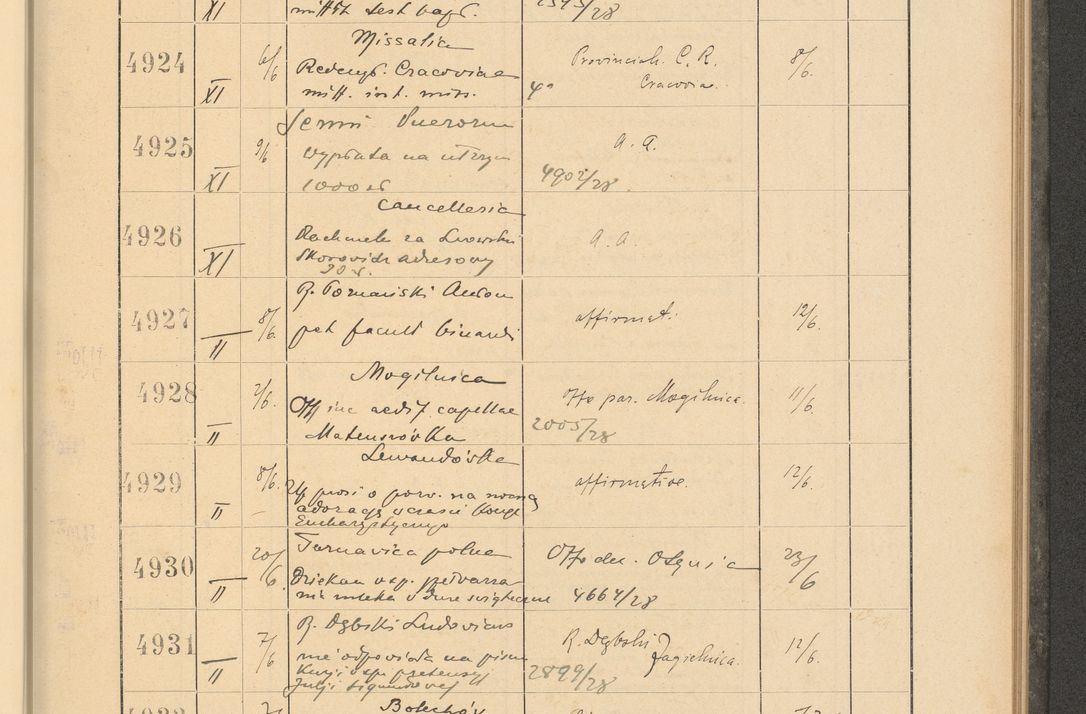 XI mitt. test. bapt. 2343/28
4924 6/6 Missalia
Redempt. Cracoviae Provincial. C. R. 8/6.
XI mitt. int. miss. 4° Cracoviae
4925 9/6 Semi Puerorum
wypłata na utrzym a. a.
XI 1000 zł 4902/28
4926 Cancellaria
Rachunek za Lwowski a. a.
XI Skorowidz adresowy
30 zł.
4927 8/6. R. Poznański Anton affirmat. 12/6.
II pet facult binandi
4928 7/6. Mogilnica
Off. par. Mogilnica. 11/6.
aedif. capellae
II Mateuszówka 2005/28
4929 8/6. Lewandówka
prosi o pozw. na nocną affirmative. 12/6.
II adorację w czasie Kongr.
Eucharystycznego
4930 20/6 Tarnawica polna Off. dec. 23/6
Dziekan
II mleka w dnie świąteczne 4664/28
4931 7/6 R. Dębski Ludovicus R. Dębski Jagielnica. 12/6.
nie odpowiada na pismo
II Kurji wsp. pretensyj 2899/28
Julji
Bolechów